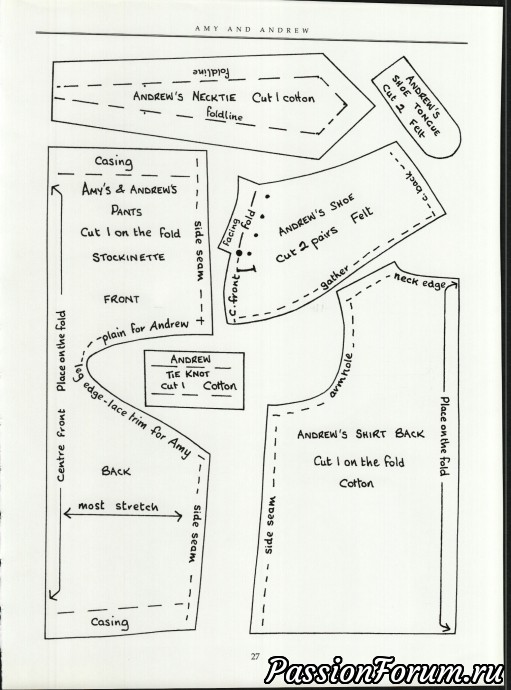 AMY AND ANDREW
foldline
ANDREW'S NECKTIE Cut 1 cotton
foldline
ANDREW'S
SHOE TONGUE
Cut 2 Felt
Casing
AMY'S & ANDREW'S
PANTS
Cut 1 on the fold
STOCKINETTE
FRONT
side seam
plain for Andrew
leg edge-lace trim for Amy
Centre front Place on the fold
BACK
most stretch
side seam
Casing
facing
fold
C.front
ANDREW'S SHOE
Cut 2 pairs Felt
c.back
gather
ANDREW
TIE KNOT
Cut 1 Cotton
neck edge
armhole
Place on the fold
ANDREW'S SHIRT BACK
Cut 1 on the fold
Cotton
side seam
27
PassionForum.ru